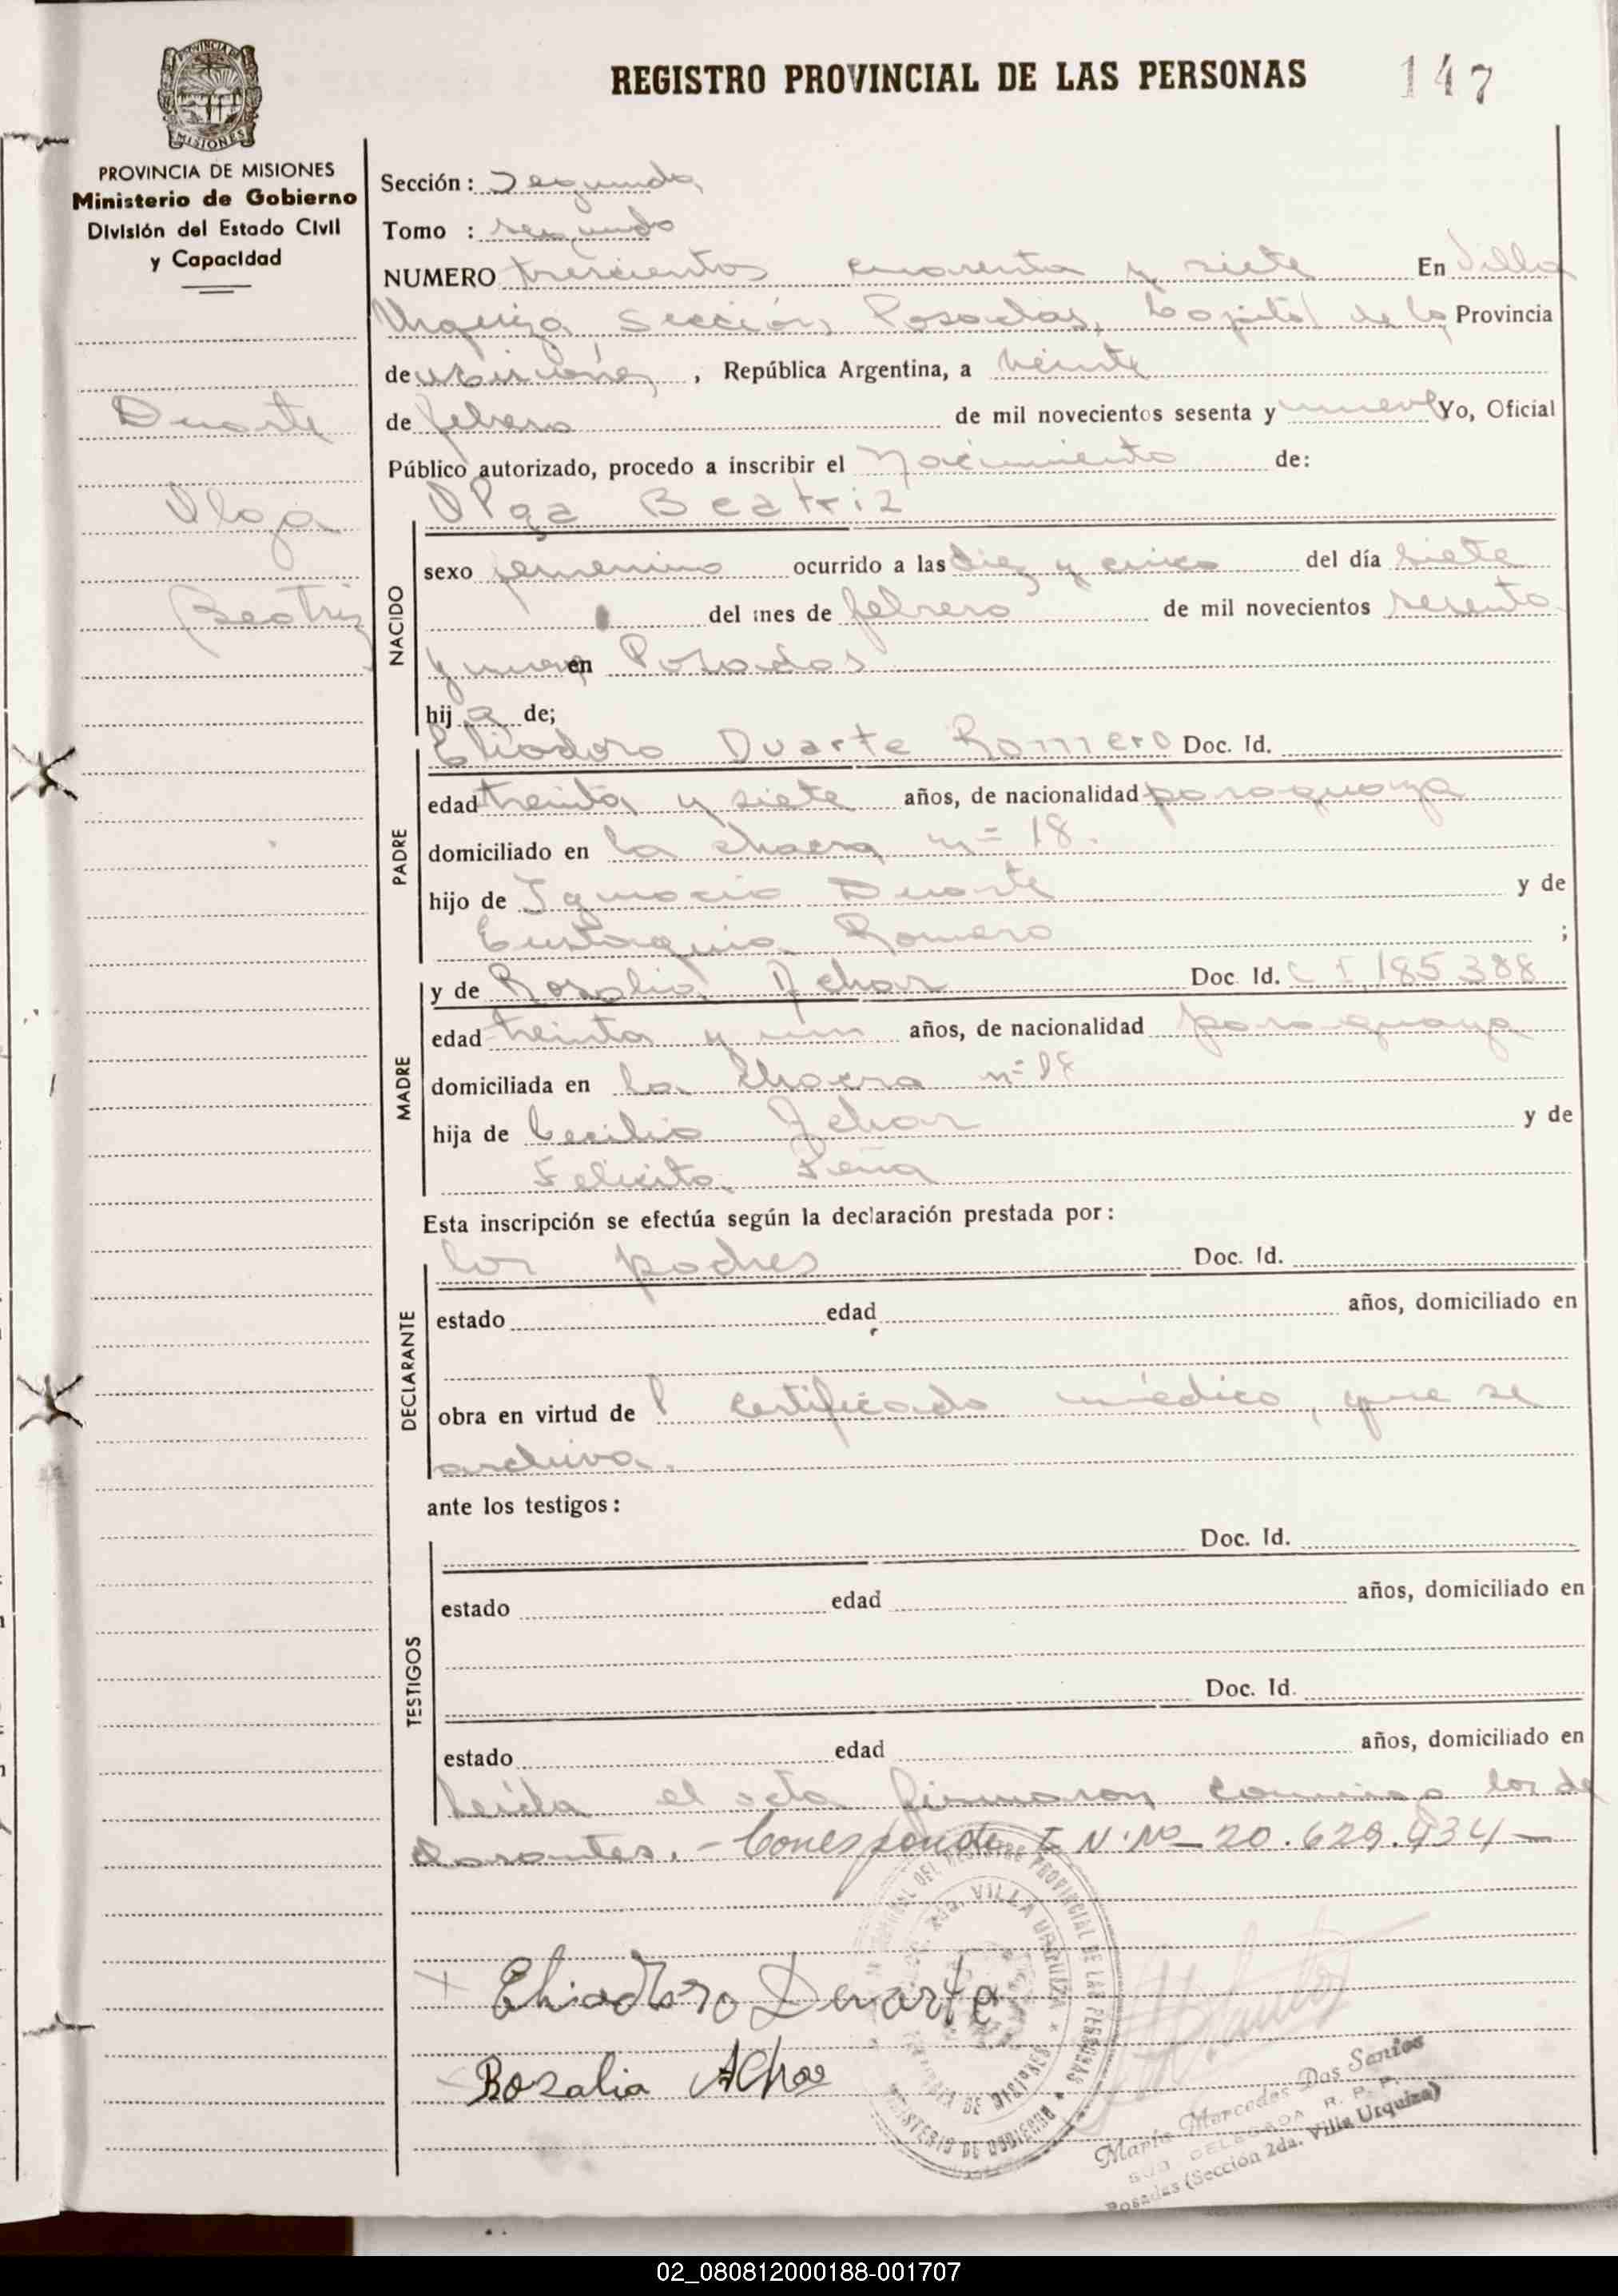 REGISTRO PROVINCIAL DE LAS PERSONAS 147
PROVINCIA DE MISIONES
MISIONES
PROVINCIA DE MISIONES
Ministerio de Gobierno
División del Estado Civil
y Capacidad
Duarte
Olga
Beatriz
Sección: Segunda
Tomo : segundo
NUMERO trescientos cuarenta y siete En Villa
Urquiza, Sección, Posadas, Capital de la Provincia
de Misiones , República Argentina, a veinte
de febrero de mil novecientos sesenta y nueve Yo, Oficial
Público autorizado, procedo a inscribir el Nacimiento de:
NACIDO
Olga Beatriz
sexo femenino ocurrido a las diez y cinco del día siete
del mes de febrero de mil novecientos sesenta
y nueve en Posadas
hij a de;
PADRE
Eliodoro Duarte Romero Doc. Id.
edad treinta y siete años, de nacionalidad paraguaya
domiciliado en la chacra nº 18.
hijo de Ignacio Duarte y de
Eustaquia Romero ;
MADRE
y de Rosalia Achar Doc. Id. C I 185388
edad treinta y un años, de nacionalidad paraguaya
domiciliada en la chacra nº 18
hija de Cecilio Achar y de
Felicita Peña
Esta inscripción se efectúa según la declaración prestada por:
DECLARANTE
los padres Doc. Id.
estado edad años, domiciliado en
obra en virtud de l certificado médico, que se
archiva.
ante los testigos:
TESTIGOS
Doc. Id.
estado edad años, domiciliado en
Doc. Id.
estado edad años, domiciliado en
Leída el acta firmaron conmigo los de
clarantes. - Corresponde I N. Nº 20.629.934-
Eliodoro Duarte
Rosalia Achar
DEL REGISTRO PROVINCIAL DE LAS PERSONAS
VILLA URQUIZA
MINISTERIO DE GOBIERNO
Maria Mercedes Dos Santos
SUB DELEGADA R. P. P.
Posadas (Sección 2da. Villa Urquiza)
02_080812000188-001707